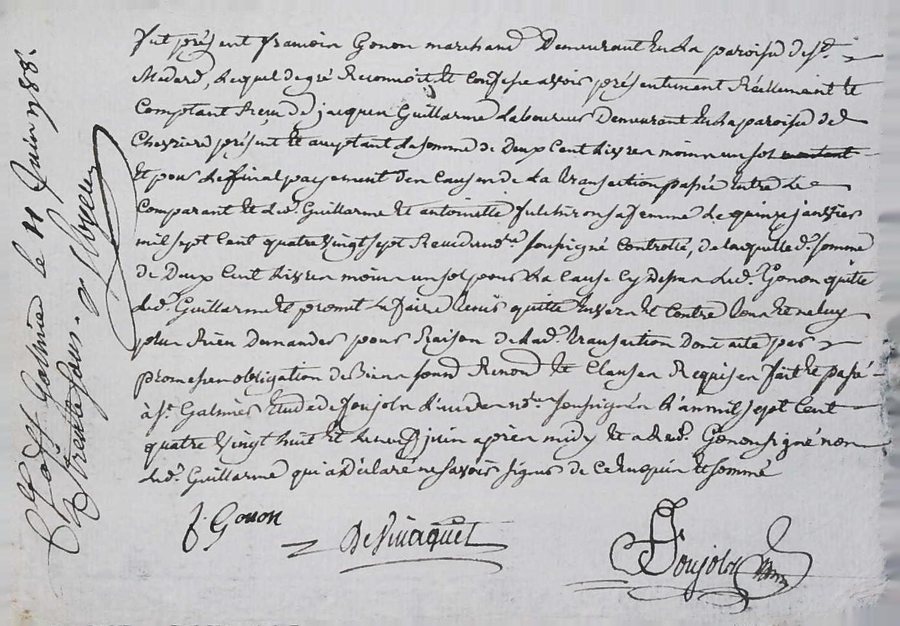 Fut présent francois Gonon marchand Demeurant En La paroisse de st.
Médard, Lequel de gré Reconnoit Et confesse avoir présentement Réellement Et
Comptant Recu de jacques Guillarme Laboureur Demeurant En La paroisse de
Chevrieres présent Et acceptant La somme de Deux Cent Livres moins un sol
Et pour Le final payement Des Causes de La transaction passée entre Le
Comparant Et Led. Guillarme Et antoinette sa femme Le quinze janvier
mil sept Cent quatre vingt sept Recu des nore. soussigné Controllé, de laquelle d. somme
de Deux Cent Livres moins un sol pour La Cause Cy Dessus Led. Gonon quite
Led. Guillarme Et promet Le faire tenir quitte Envers Et Contre tous Et ne luy
plus Rien Demander pour Raison de Lad. transaction Dont acte par
promesses obligation de Biens soumd Renond Et Clauses Requises fait Et passé
à St. Galmier Etude de Joujoln L'un des nores soussignés L'an mil sept Cent
quatre vingt huit Et Le juin après midy Et a Led. Gonon signé non
Led. Guillarme qui a Déclaré ne savoir signer de Ce Enquis Et sommé
f. Gonon
Joujoln
St Galmier le 11 Juin 1788.
trente sous.